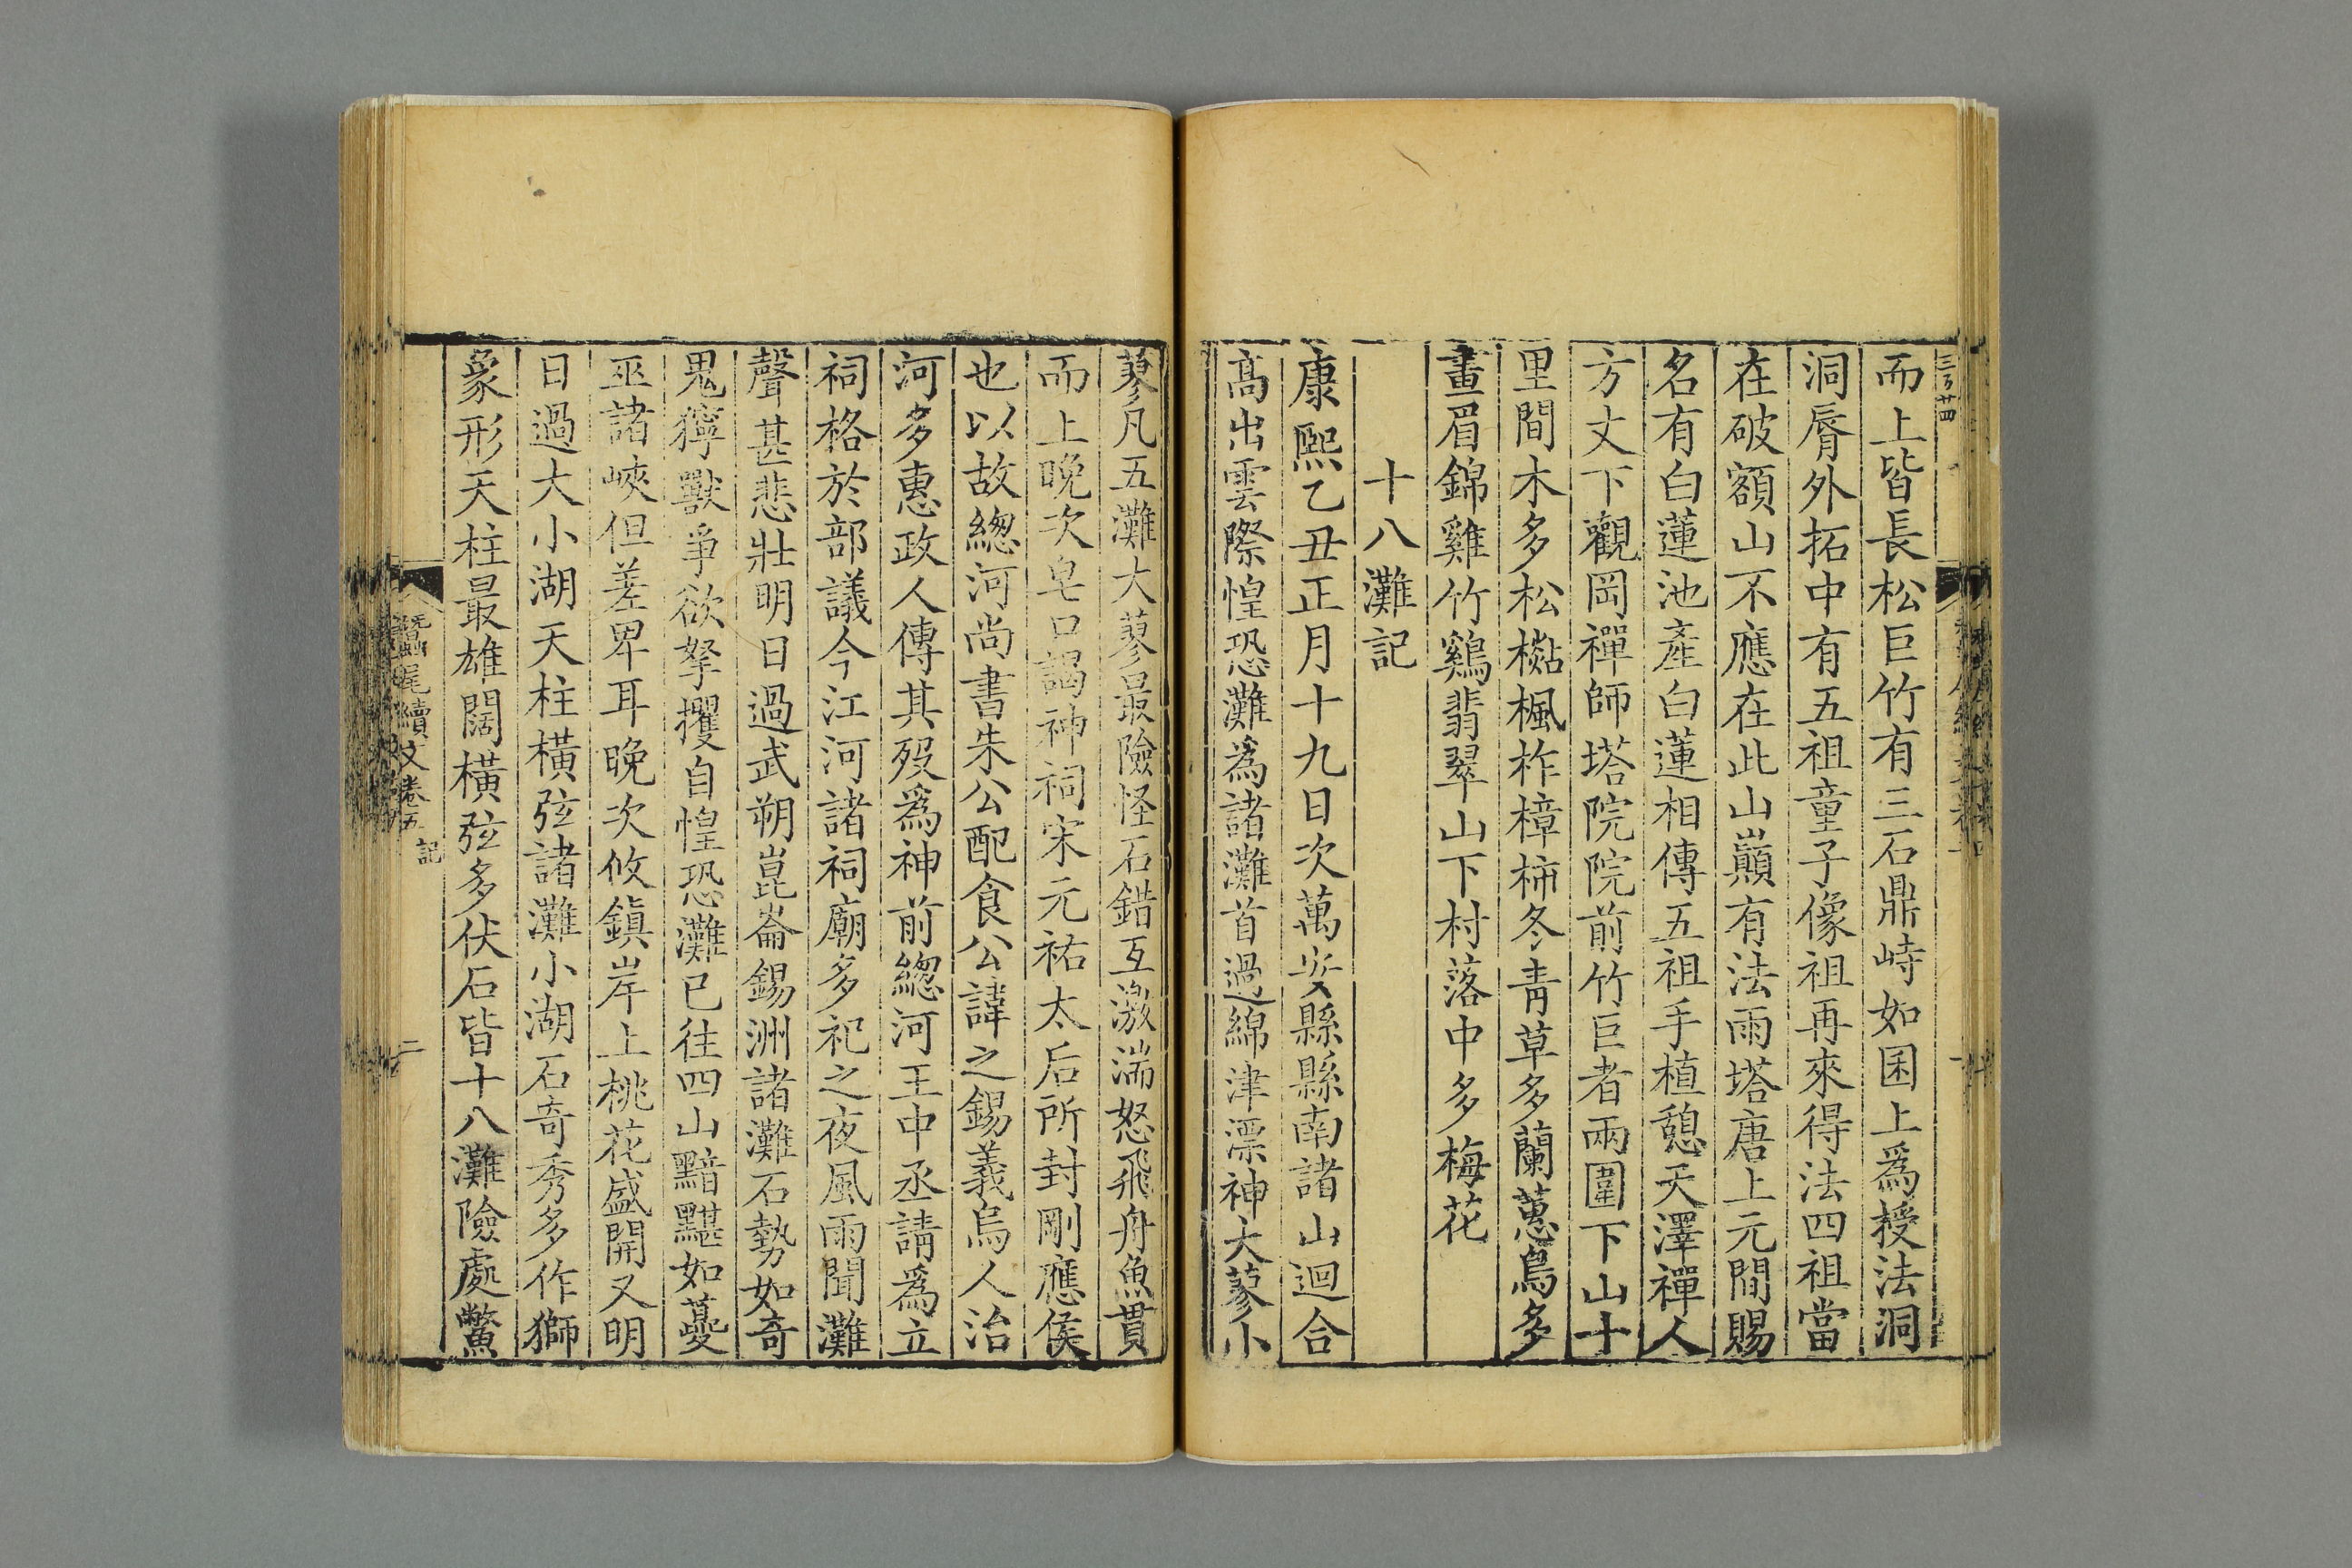 三百廿四
而上皆長松巨竹有三石鼎峙如囷上爲授法洞
洞脣外拓中有五祖童子像祖再來得法四祖當
在破額山不應在此山巔有法雨塔唐上元間賜
名有白蓮池產白蓮相傳五祖手植憩天澤禪人
方丈下觀岡禪師塔院院前竹巨者兩圍下山十
里間木多松檆楓柞樟柿冬青草多蘭蕙鳥多
畫眉錦雞竹鷄翡翠山下村落中多梅花
十八灘記
康熙乙丑正月十九日次萬安縣縣南諸山迴合
高出雲際惶恐灘爲諸灘首過綿津漂神大蓼小
蓼凡五灘大蓼最險怪石錯互激湍怒飛舟魚貫
而上晚次皂口謁神祠宋元祐太后所封剛應侯
也以故緫河尚書朱公配食公諱之錫義烏人治
河多惠政人傳其歿爲神前緫河王中丞請爲立
祠格於部議今江河諸祠廟多祀之夜風雨聞灘
聲甚悲壯明日過武朔崑崙錫洲諸灘石勢如奇
鬼獰獸爭欲拏攫自惶恐灘已往四山黯黮如夔
巫諸峽但差卑耳晚次攸鎮岸上桃花盛開又明
日過大小湖天柱橫弦諸灘小湖石奇秀多作獅
象形天柱最雄闊橫弦多伏石皆十八灘險處鱉
蠶尾續文卷五
記
二